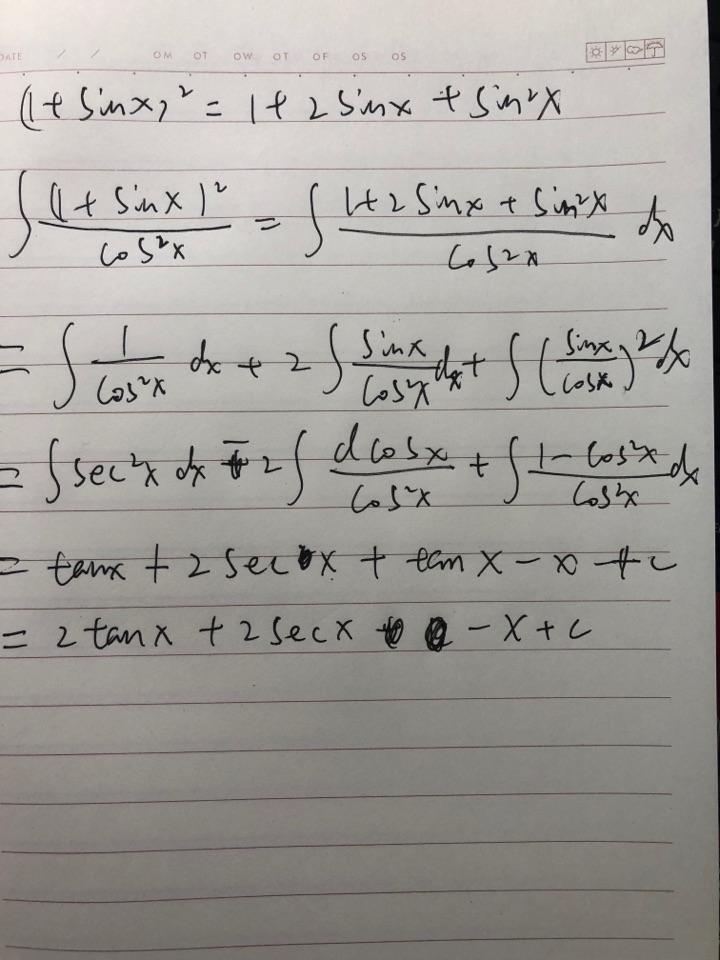 DATE / / OM OT OW OT OF OS OS
(1+sinx)² = 1+2sinx+sin²x
∫ (1+sinx)²/cos²x = ∫ (1+2sinx+sin²x)/cos²x dx
= ∫ 1/cos²x dx + 2∫ sinx/cos²x dx + ∫ (sinx/cosx)² dx
= ∫ sec²x dx - 2∫ dcosx/cos²x + ∫ (1-cos²x)/cos²x dx
= tanx + 2secx + tanx - x + c
= 2tanx + 2secx - x + c